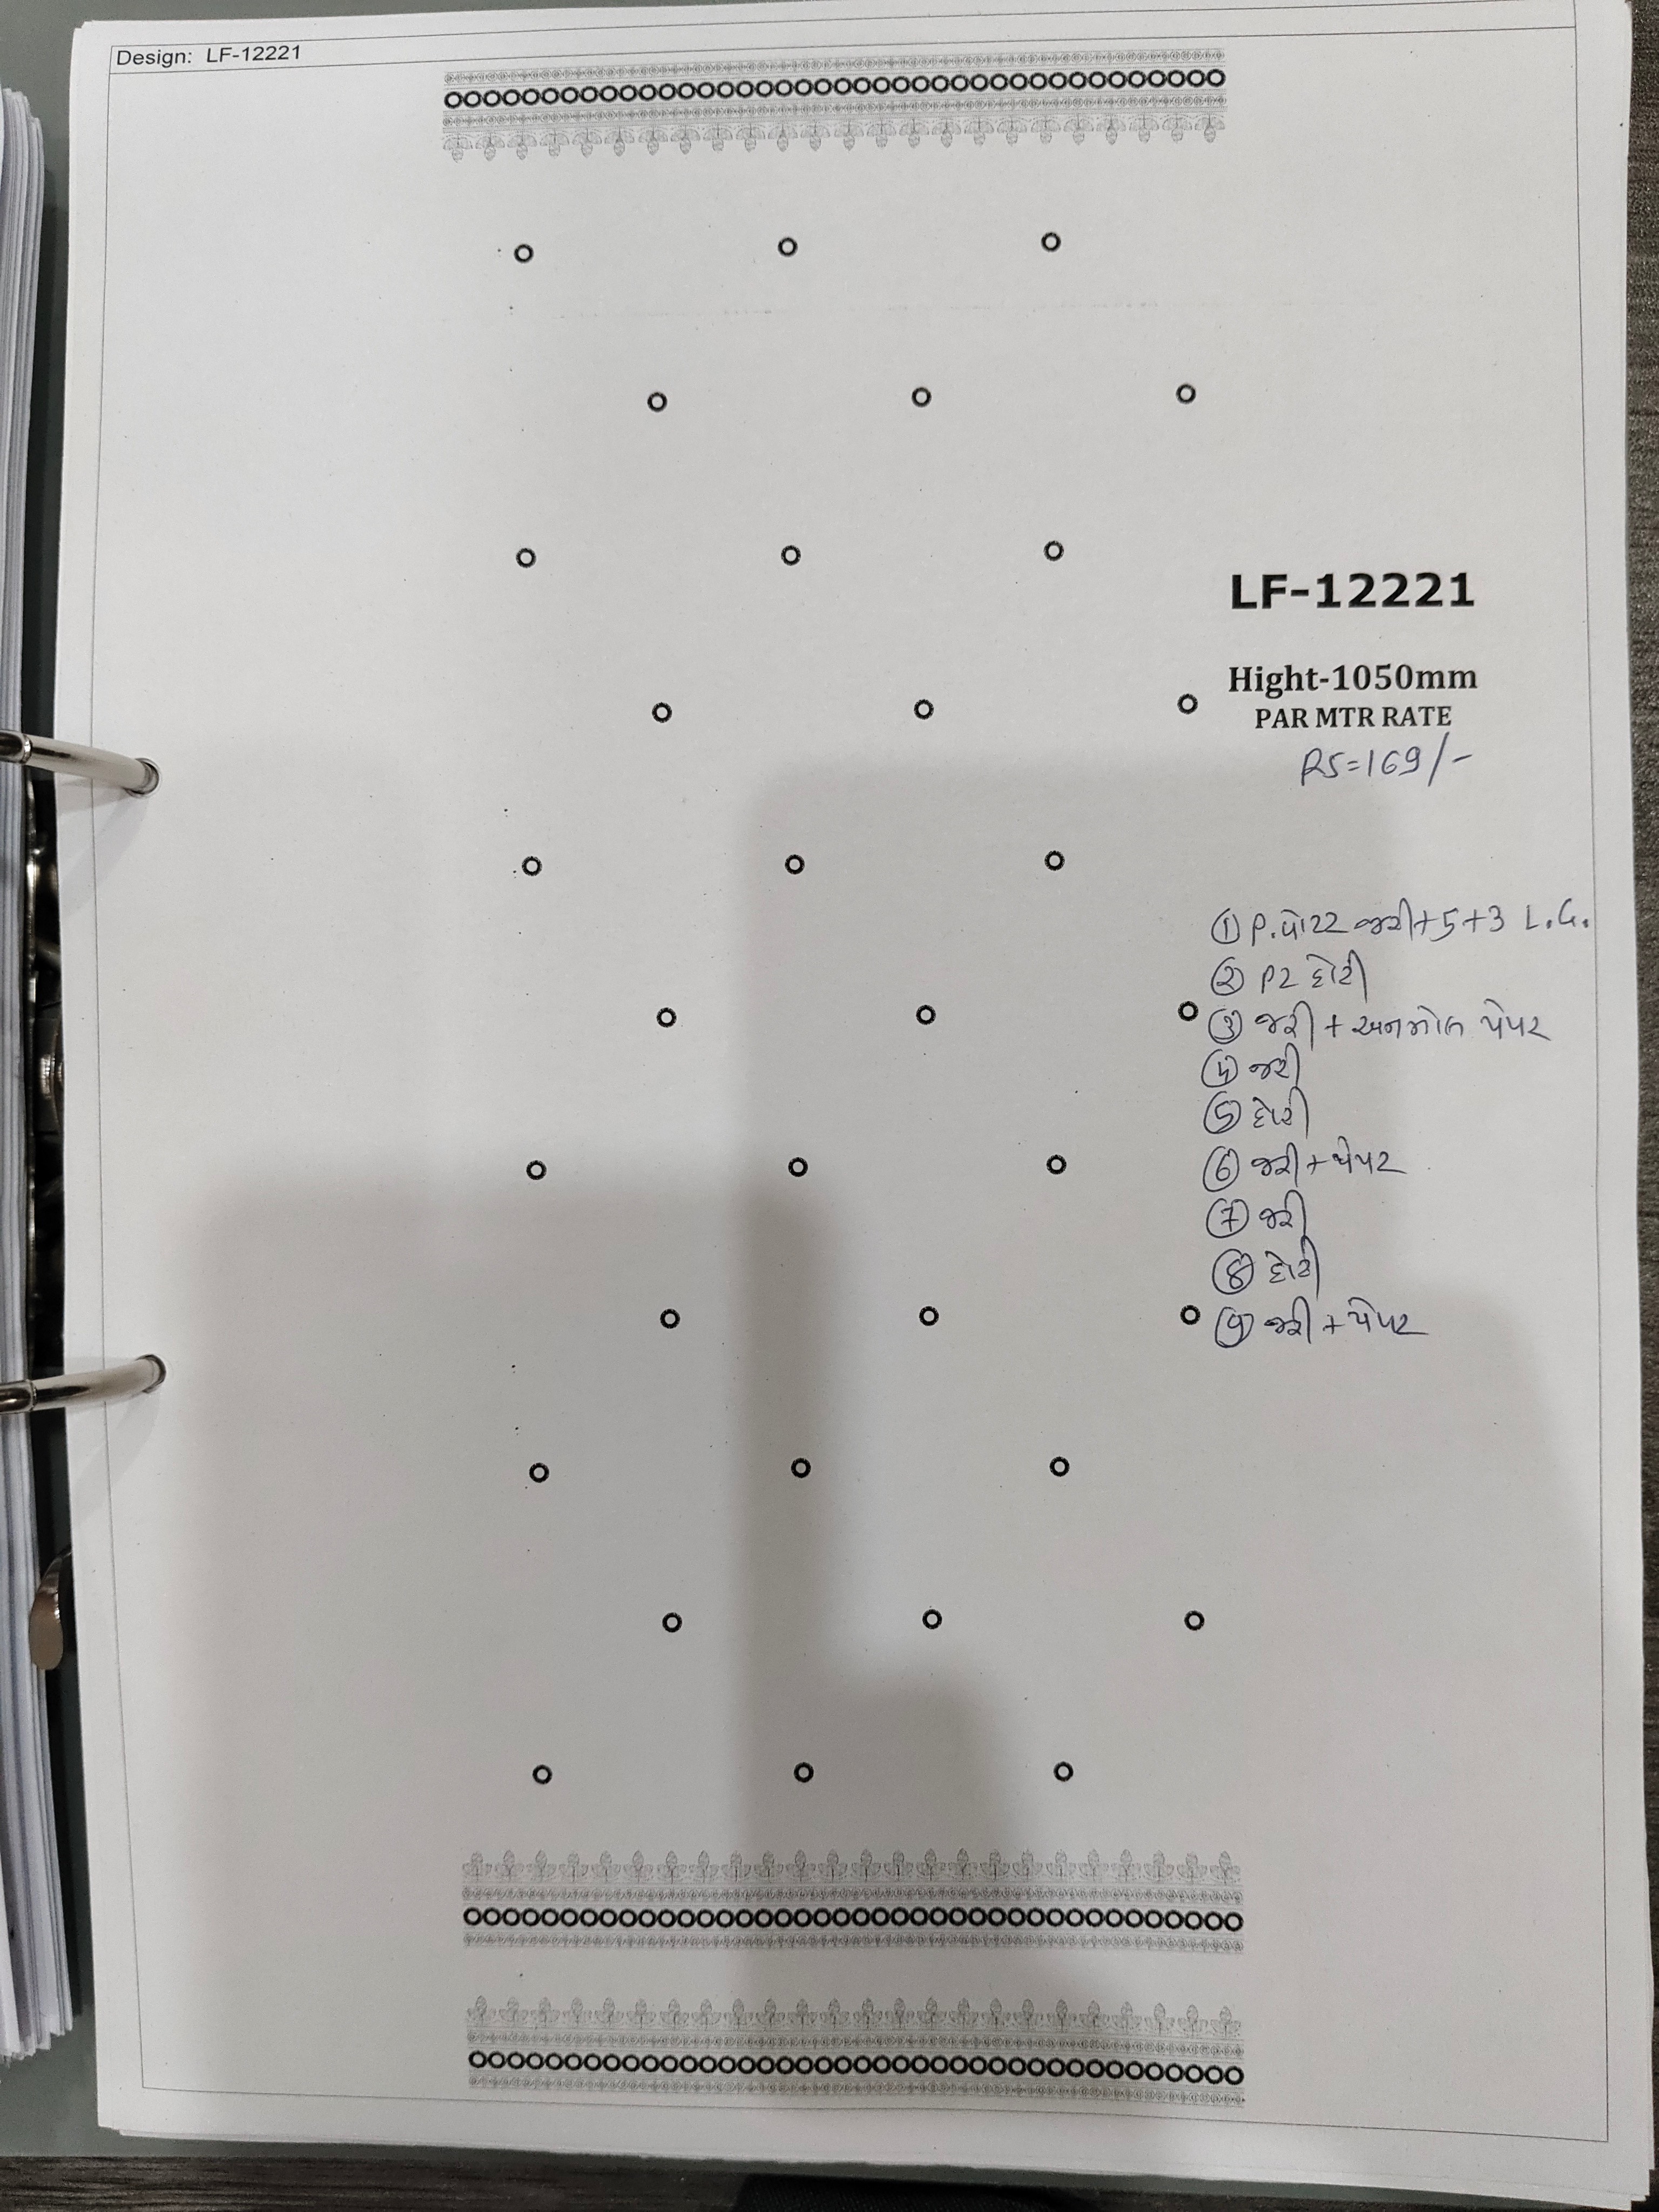 Design: LF-12221
LF-12221
Hight-1050mm
PAR MTR RATE
RS=169/-
① P.વોટર જરી+5+3 L.G.
② P2 દોરી
③ જરી + અનમોલ પેપર
④ જરી
⑤ દોરી
⑥ જરી + પેપર
⑦ જરી
⑧ દોરી
⑨ જરી + પેપર